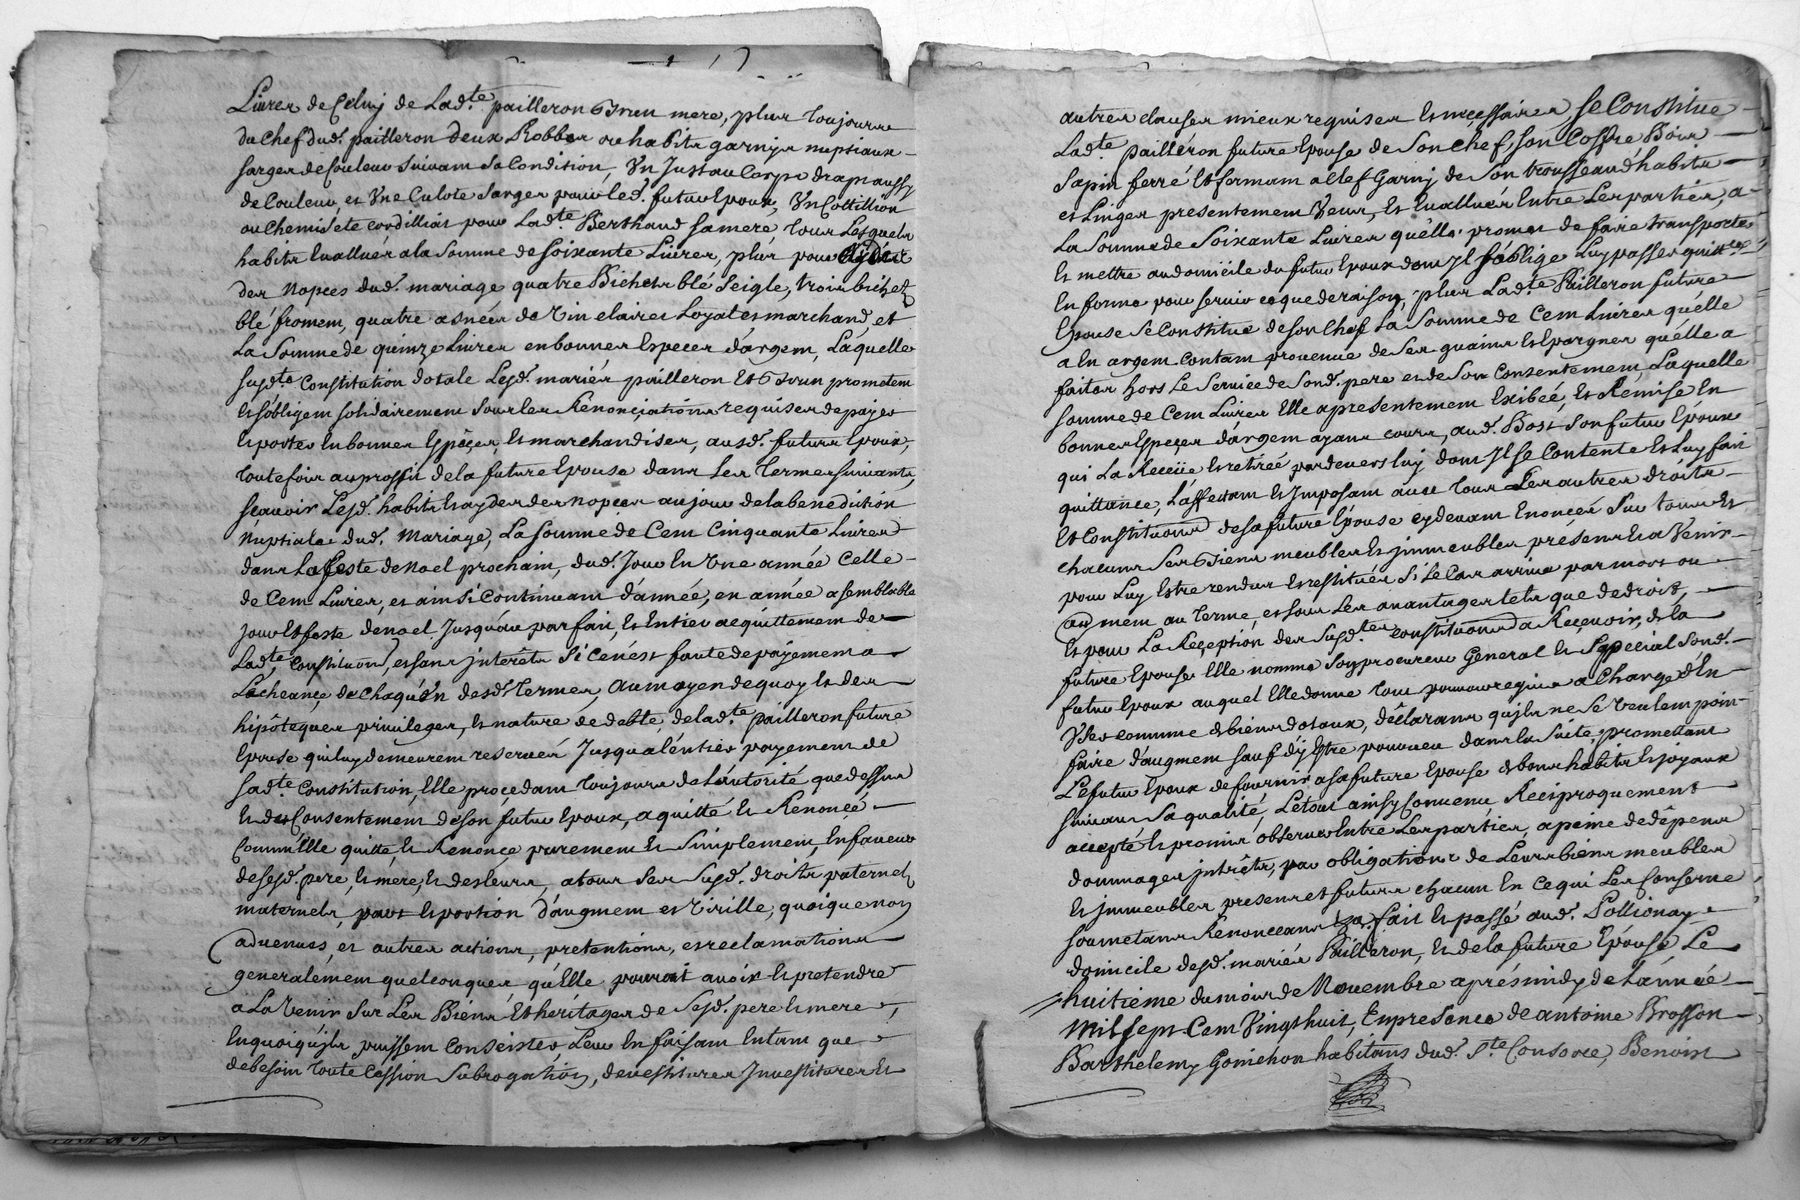 Livres de Celuy de Lad.te pailleron Et un mere, plus toujours
du chef dud. pailleron deux Robbes ou habits garnys nuptiaux
sarges de Couleur suivant sa Condition, Un Justaucorps drap aussy
de Couleur, et Une Culote sarges pour led. futur Epoux, Un Cottillion
ou Chemisete cordilliat pour Lad.te Berthaud sa mere, tous Lesquels
habits Evallués a la Somme de soixante Livres, plus pour
des nopces dud. mariage quatre Bichets blé seigle, trois bichets
blé froment, quatre asnées de Vin claires Loyal et marchand, et
La Somme de quinze Livres en bonnes Especes d'argent, Laquelle
susd.te Constitution dotale Lesd. mariés pailleron Et prometent
Et s'obligent solidairement sous les Renonciations requises de payer
Et porter En bonnes Espèçes, Et marchandises, ausd. futurs Epoux,
toutefois au proffit de la future Epouse dans Les termes suivants,
scavoir Lesd. habits Et aydes des nopces au jour de la benediction
Nuptiale dud. Mariage, La Somme de Cent Cinquante Livres
dans La feste de Noel prochain, dud. Jour En Une année Celle
de Cent Livres, et ainsi Continuant d'année, en année a semblable
jour Et feste de noel Jusqu'au parfait, Et Entier acquittement de
Lad.te Constituon, et sans jnterêts Si ce n'est faute de payement a
Lecheançe de Chaqu'un desd. termes, Au moyen de quoy Et des
hipôteques privileges, Et nature de debte, de lad.te pailleron future
Epouse qui luy demeurent reservés Jusqu'a l'entier payement de
sad.te Constitution, Elle procedant toujours de L'autorité que dessus
Et du Consentement de son futur Epoux, a quitté Et Renoncé
Comm'Elle quitte, Et Renonçe purement Et Simplement, En faveur
de sesd. pere, Et mere, Et des leurs, a tous ses susd. droits paternels
maternels, part Et portion d'augment et Virille, quoique non
advenues, et autres actions, pretentions, et reclamations
generalement quelconques qu'Elle pourroit avoir Et pretendre
a La Venir sur Les Biens Et héritages de Sesd. pere Et mere,
En quoi qu'jls puissent Conseister, Leur En faisant Entant que
de besoin toute Cession Subrogation, devestitures Jnvestitures Et
autres clauses mieux requises Et neçessaires Se Constitue
Lad.te pailleron future Epouse de Son Chef, son Coffre Bois
Sapin ferré Et fermant a Clef Garny de Son trousseau d'habits
et Linges presentement Veus, Et Evallués Entre Les parties, a
La Somme de Soixante Livres qu'elle promet de faire transporter
Et mettre au domicile du futur Epoux dont Jl s'oblige Luy passer quitt.ce
En forme pour servir ce que de raison, plus Lad.te Pailleron future
Epouse se Constitue de son Chef La Somme de Cent Livres qu'elle
a En argent contant provenue de Ses guains Et Epargnes qu'elle a
faites hors Le Service de Sond. pere et de Son Consentement, Laquelle
somme de Cent Livres Elle a presentement Exibée, Et Remise En
bonnes Espeçes d'argent ayant cours, aud. Bost Son futur Epoux
qui La Receüe Et retirée pardevers luy dont Jl se Contente Et Luy fait
quittance, L'affectant Et Jmposant avec tous Les autres droits
Et Constituons de sa future Epouse cy devant Enoncés Sur tous Et
chacuns Ses Biens meubles Et jmmeubles présens Et a Venir
pour Luy Estre rendus Et restitués Si le Cas arrive par mort ou
au mem au terme, et sous Les avantages tels que de droit,
Et pour La Reception des Susd.tes constituons a Reçevoir, de la
future Epouse Elle nomme Son procureur General Et Special Sond.
futur Epoux auquel Elle donne tout pouvoir requis a Charge d'En
User comme de biens dotaux, declarans qu'jls ne Se Veulent point
faire d'augment sauf d'y Estre pourveu dans la Suite, promettant
Le futur Epoux de fournir a sa future Epouse de bons habits Et joyaux
suivant Sa qualité, Le tout ainsy Convenu Reciproquement
accepté Et promis observer Entre Les parties, a peine de dêpens
dommages jnterêts, par obligations de Leurs biens meubles
Et jmmeubles presens et futurs chacun En ce qui Les Conserne
soumetans Renonceans Et.a, fait Et passé aud. Pollionay
domicile desd. mariés Pailleron, Et de la future Epouse Le
huitieme du mois de Novembre aprés midy de L'année
Mil sept Cent Vingt huit, En presence de antoine Brosson
Barthelemy Gonichon habitans dud. S.te Consorce, Benoist